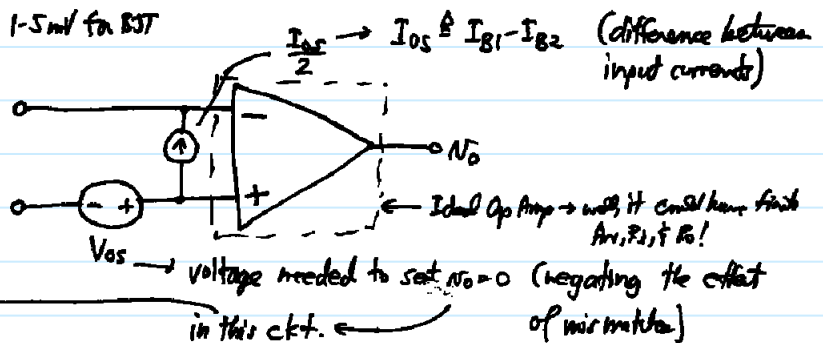 1-5mV for BJT
I_OS/2 → I_OS ≜ I_B1 - I_B2 (difference between
input currents)
−
+
v_o
← Ideal Op Amp → well, it could have finite
A_v, R_i, & R_o!
- +
V_OS → voltage needed to set v_o = 0 (negating the effect
in this ckt. of mismatches)